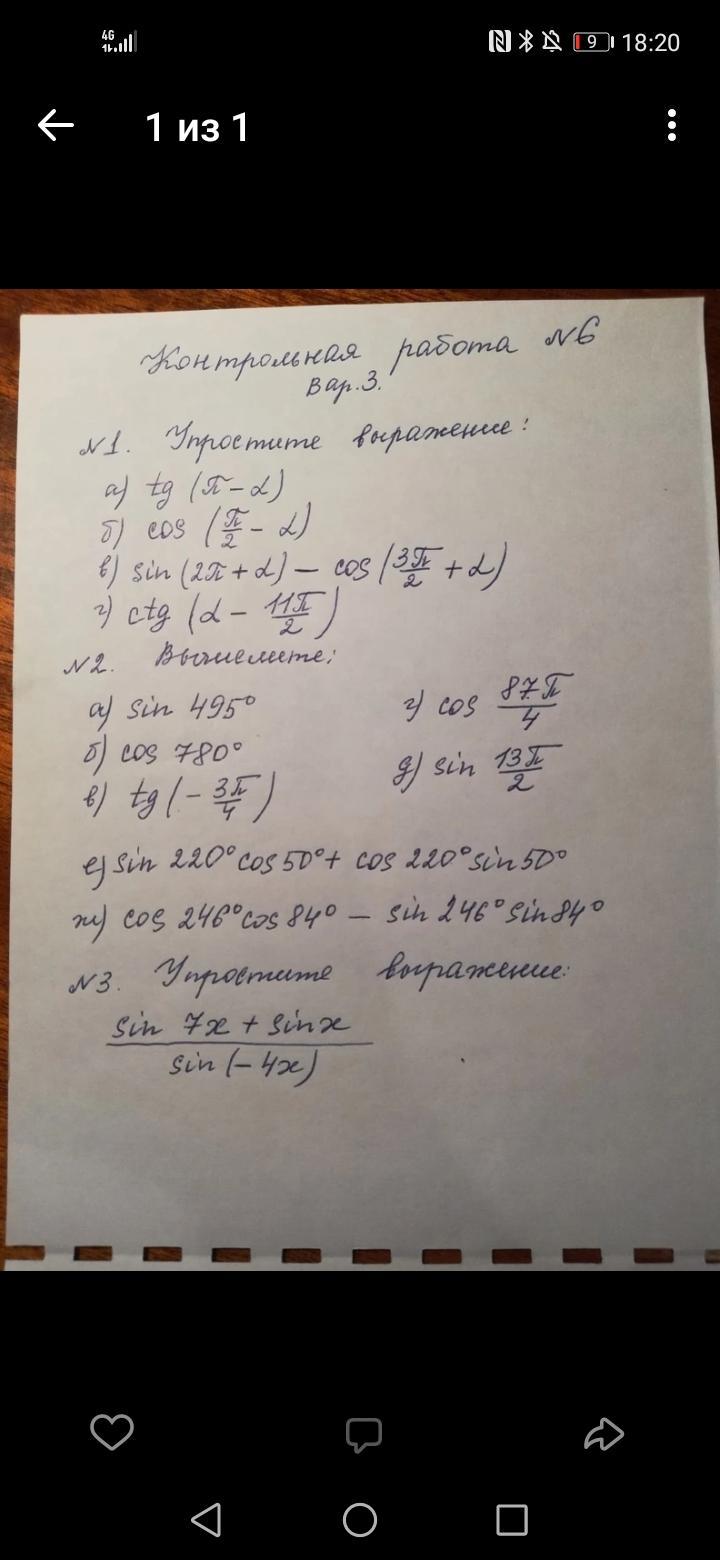 4G
9 18:20
1 из 1
Контрольная работа №6
Вар.3.
№1. Упростите выражение:
а) tg (π - α)
б) cos (π/2 - α)
в) sin (2π + α) - cos (3π/2 + α)
г) ctg (α - 11π/2)
№2. Вычислите:
а) sin 495°
б) cos 780°
в) tg (- 3π/4)
г) cos 87π/4
д) sin 13π/2
е) sin 220° cos 50° + cos 220° sin 50°
ж) cos 246° cos 84° - sin 246° sin 84°
№3. Упростите выражение:
sin 7x + sin x
sin (- 4x)